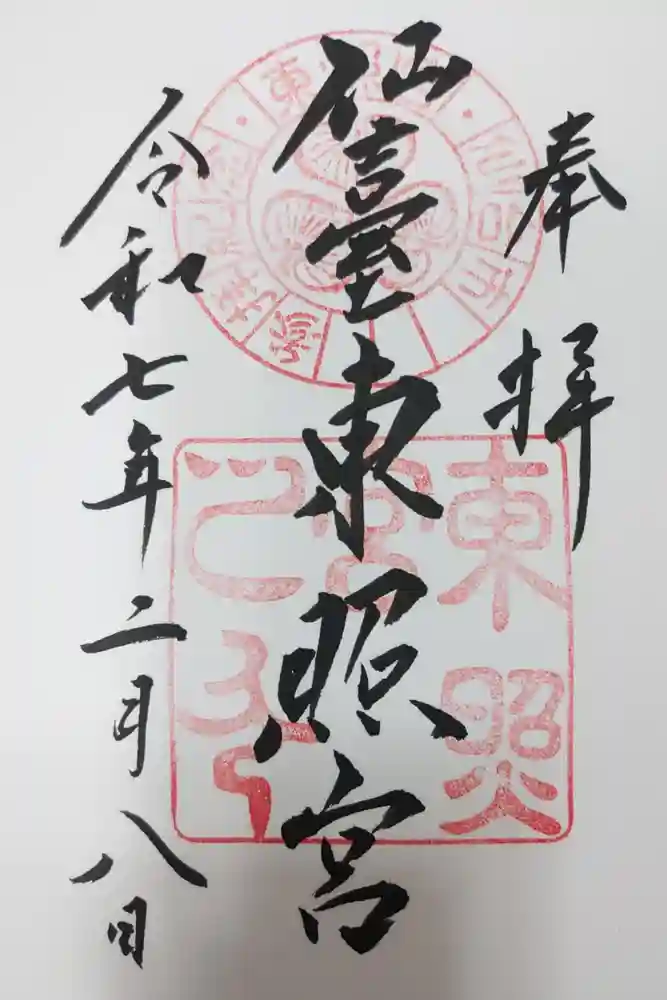 奉拝
仙臺東照宮
令和七年二月八日
東照宮之印